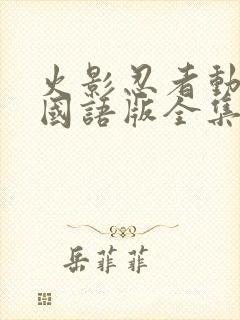 火影忍者動
國語版全集
岳菲菲